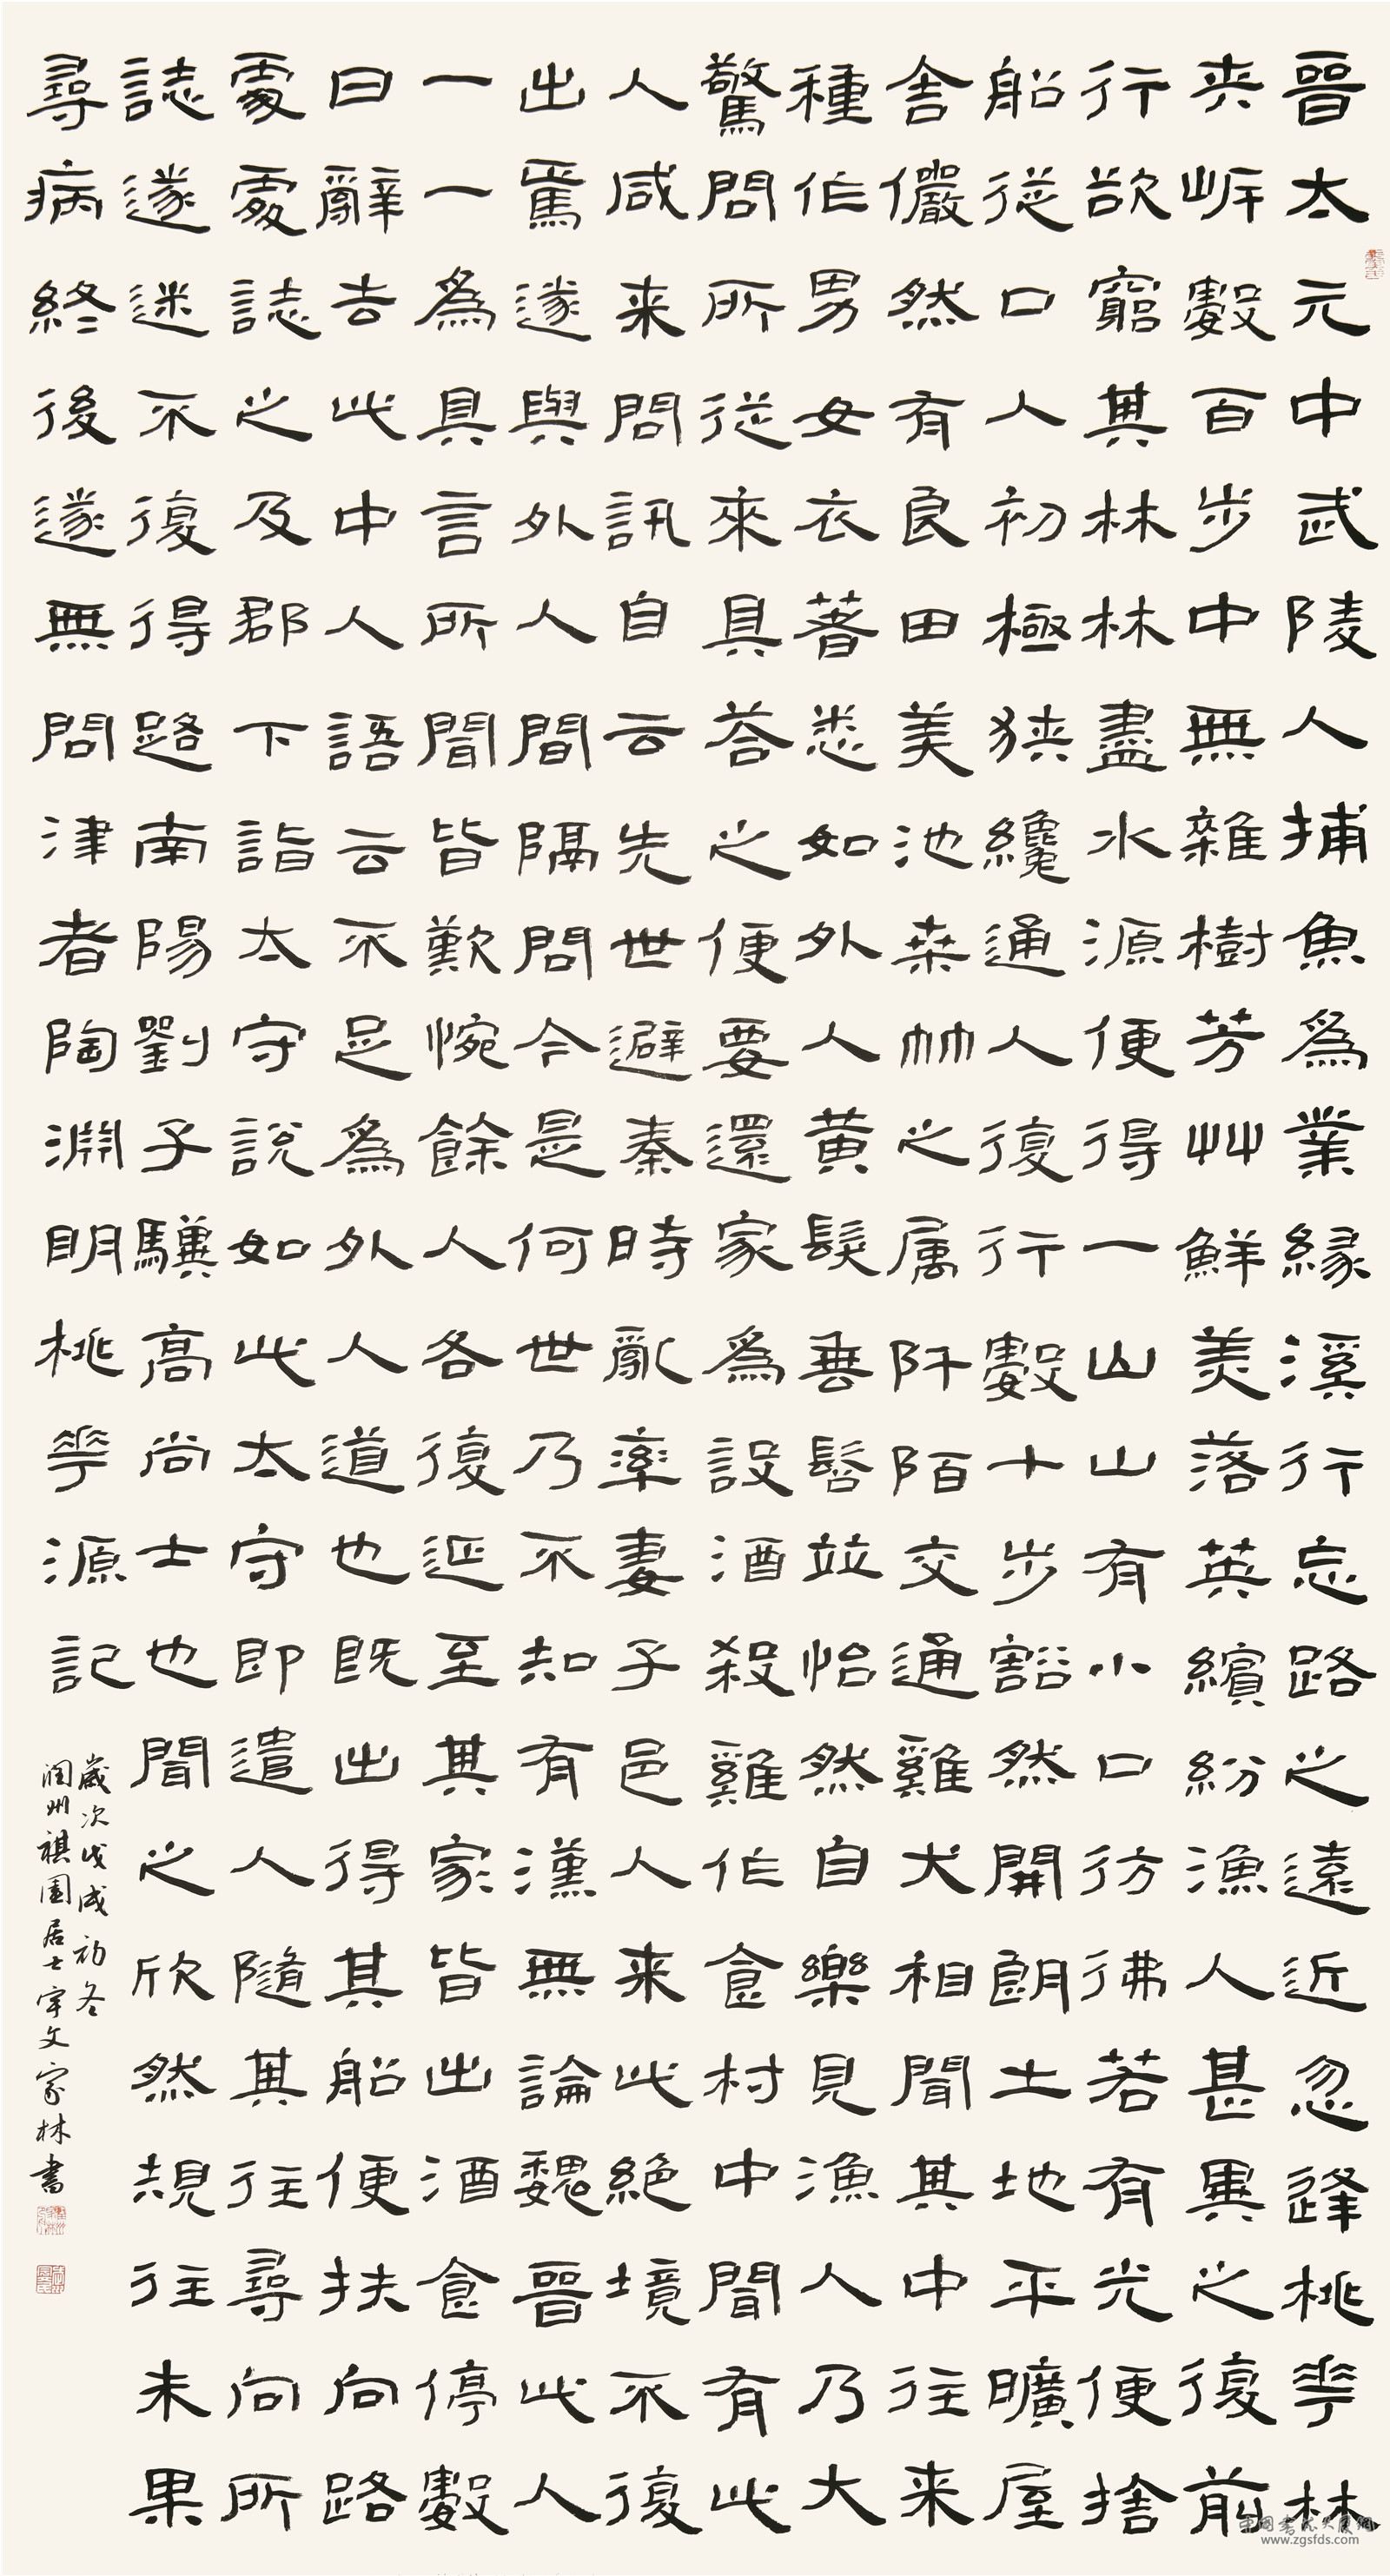 晉太元中武陵人捕魚為業緣溪行忘路之遠近忽逢桃華林
夾岸數百步中無雜樹芳艸鮮美落英繽紛漁人甚異之復前
行欲窮其林林盡水源便得一山山有小口彷彿若有光便捨
船從口入初極狹纔通人復行數十步豁然開朗土地平曠屋
舍儼然有良田美池桑竹之属阡陌交通雞犬相聞其中往来
種作男女衣著悉如外人黄髮垂髫並怡然自樂見漁人乃大
驚問所從來具荅之便要還家為設酒殺雞作食村中聞有此
人咸来問訊自云先世避秦時亂率妻子邑人来此絶境不復
出焉遂與外人間隔問今是何世乃不知有漢無論魏晉此人
一一為具言所聞皆歎惋餘人各復延至其家皆出酒食停數
日辭去此中人語云不足為外人道也既出得其船便扶向路
處處誌之及郡下詣太守說如此太守即遣人隨其往尋向所
誌遂迷不復得路南陽劉子驥高尚士也聞之欣然規往未果
尋病終後遂無問津者陶淵明桃華源記
歲次戊戌初冬
潤州祺園居士宇文家林書
www.zgsfds.com